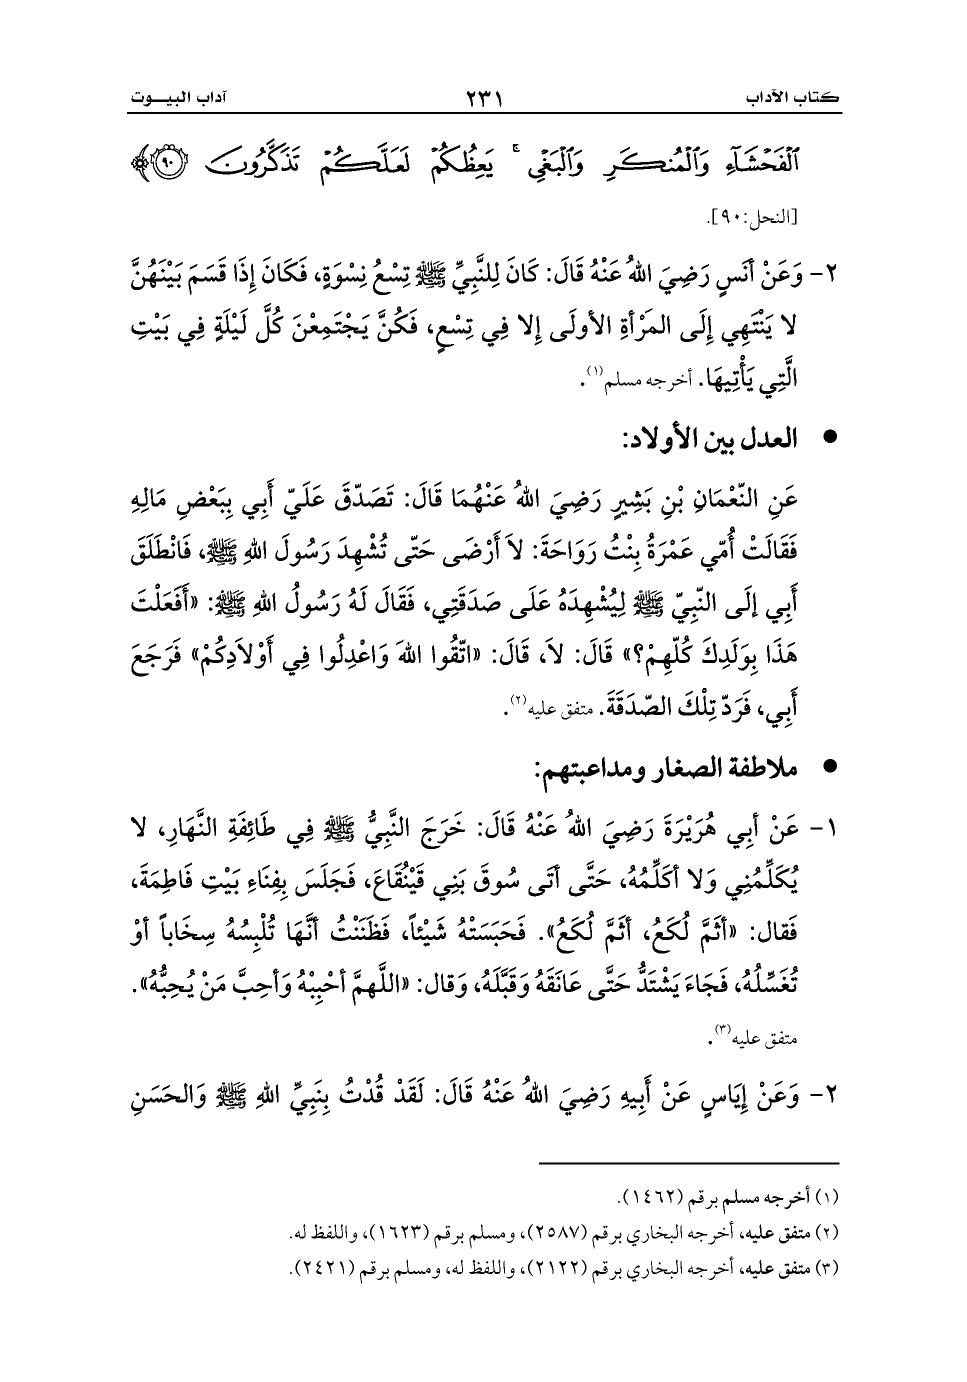 كتاب الآداب ٢٣١ آداب البيـــوت
ٱلْفَحْشَآءِ وَٱلْمُنكَرِ وَٱلْبَغْىِ ۚ يَعِظُكُمْ لَعَلَّكُمْ تَذَكَّرُونَ ۝٩٠﴾
[النحل:٩٠].
٢- وَعَنْ أنَسٍ رَضِيَ اللهُ عَنْهُ قَالَ: كَانَ لِلنَّبِيِّ ﷺ تِسْعُ نِسْوَةٍ، فَكَانَ إِذَا قَسَمَ بَيْنَهُنَّ
لا يَنْتَهِي إِلَى المَرْأةِ الأولَى إِلا فِي تِسْعٍ، فَكُنَّ يَجْتَمِعْنَ كُلَّ لَيْلَةٍ فِي بَيْتِ
الَّتِي يَأْتِيهَا. أخرجه مسلم(١).
• العدل بين الأولاد:
عَنِ النّعْمَانِ بْنِ بَشِيرٍ رَضِيَ اللهُ عَنْهُمَا قَالَ: تَصَدّقَ عَلَيّ أَبِي بِبَعْضِ مَالِهِ
فَقَالَتْ أُمّي عَمْرَةُ بِنْتُ رَوَاحَةَ: لاَ أَرْضَى حَتّى تُشْهِدَ رَسُولَ اللهِ ﷺ، فَانْطَلَقَ
أَبِي إلَى النّبِيّ ﷺ لِيُشْهِدَهُ عَلَى صَدَقَتِي، فَقَالَ لَهُ رَسُولُ اللهِ ﷺ: «أَفَعَلْتَ
هَذَا بِوَلَدِكَ كُلّهِمْ؟» قَالَ: لاَ، قَالَ: «اتّقُوا اللهَ وَاعْدِلُوا فِي أَوْلاَدِكُمْ» فَرَجَعَ
أَبِي، فَرَدّ تِلْكَ الصّدَقَةَ. متفق عليه(٢).
• ملاطفة الصغار ومداعبتهم:
١- عَنْ أبِي هُرَيْرَةَ رَضِيَ اللهُ عَنْهُ قَالَ: خَرَجَ النَّبِيُّ ﷺ فِي طَائِفَةِ النَّهَارِ، لا
يُكَلِّمُنِي وَلا أكَلِّمُهُ، حَتَّى أتَى سُوقَ بَنِي قَيْنُقَاعَ، فَجَلَسَ بِفِنَاءِ بَيْتِ فَاطِمَةَ،
فَقال: «أثَمَّ لُكَعُ، أثَمَّ لُكَعُ». فَحَبَسَتْهُ شَيْئاً، فَظَنَنْتُ أنَّهَا تُلْبِسُهُ سِخَاباً أوْ
تُغَسِّلُهُ، فَجَاءَ يَشْتَدُّ حَتَّى عَانَقَهُ وَقَبَّلَهُ، وَقال: «اللَّهمَّ أحْبِبْهُ وَأحِبَّ مَنْ يُحِبُّهُ».
متفق عليه(٣).
٢- وَعَنْ إِيَاسٍ عَنْ أَبِيهِ رَضِيَ اللهُ عَنْهُ قَالَ: لَقَدْ قُدْتُ بِنَبِيِّ اللهِ ﷺ وَالحَسَنِ
(١) أخرجه مسلم برقم (١٤٦٢).
(٢) متفق عليه، أخرجه البخاري برقم (٢٥٨٧)، ومسلم برقم (١٦٢٣)، واللفظ له.
(٣) متفق عليه، أخرجه البخاري برقم (٢١٢٢)، واللفظ له، ومسلم برقم (٢٤٢١).